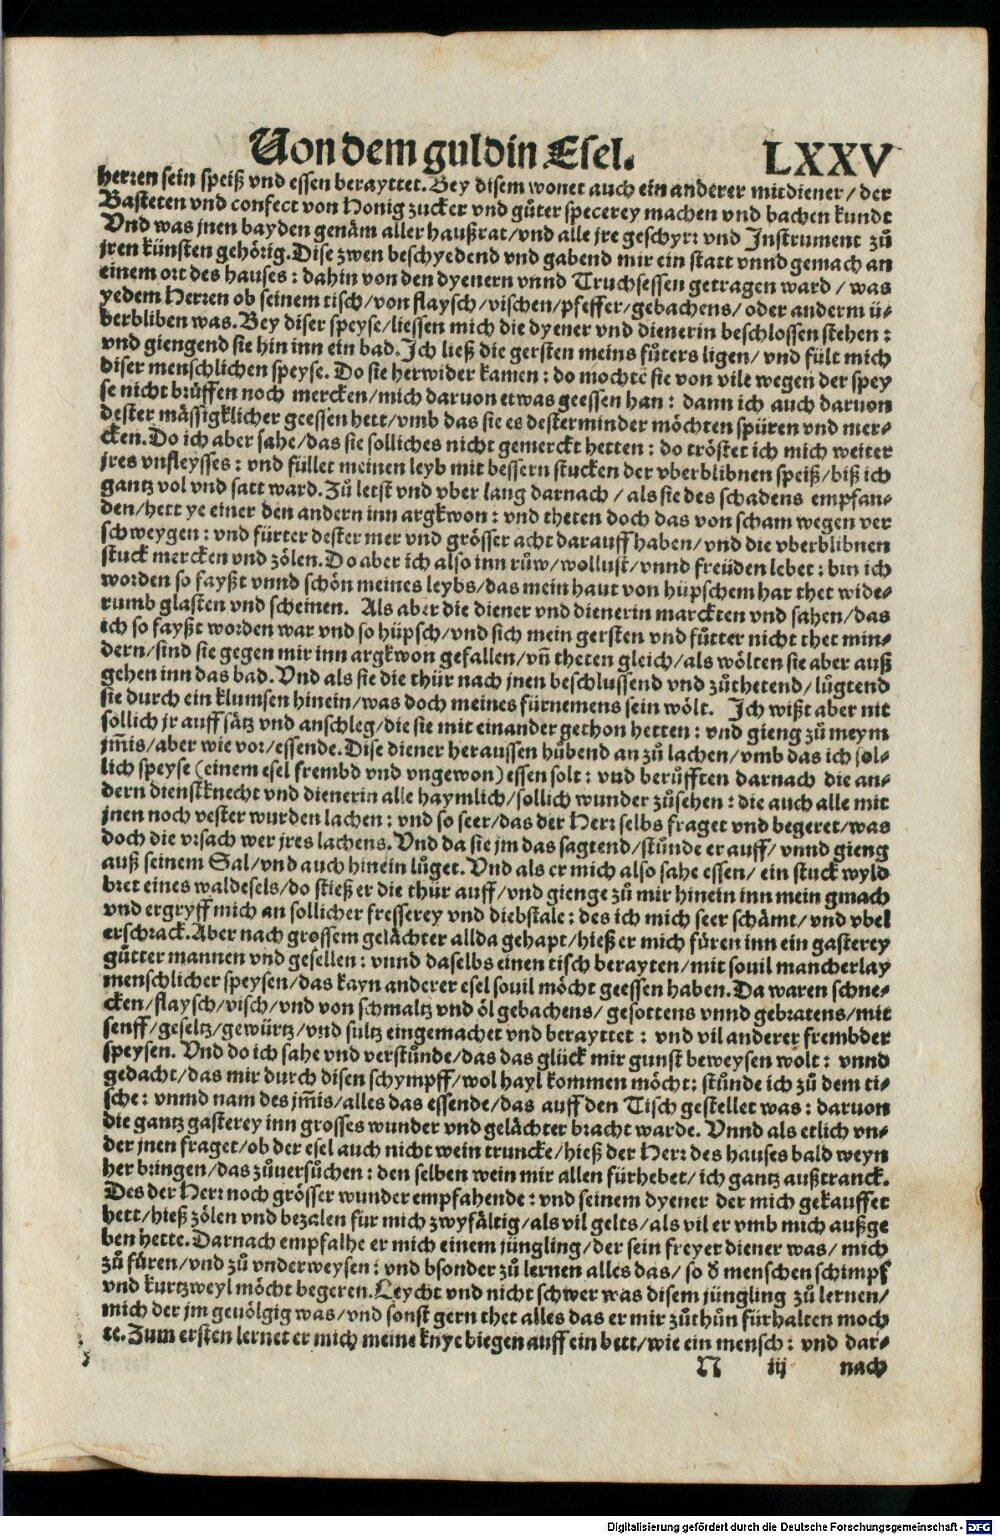 Von dem guldin Esel. LXXV
herren sein speiß vnd essen berayttet. Bey disem wonet auch ein anderer mitdiener / der
Basteten vnd confect von Honig zucker vnd gůter specerey machen vnd bachen kundt
Vnd was jnen bayden genäm aller haußrat / vnd alle jre geschyrr vnd Instrument zů
jren künsten gehörig. Dise zwen beschyedend vnd gabend mir ein statt vnnd gemach an
einem ort des hauses : dahin von den dyenern vnnd Truchsessen getragen ward / was
yedem Herren ob seinem tisch / von flaysch / vischen / pfeffer / gebachens / oder anderm ü-
berbliben was. Bey diser speyse / liessen mich die dyener vnd dienerin beschlossen stehen :
vnd giengend sie hin inn ein bad. Ich ließ die gersten meins fůters ligen / vnd fült mich
diser menschlichen speyse. Do sie herwider kamen : do mochtē sie von vile wegen der spey
se nicht brüffen noch mercken / mich daruon etwas geessen han : dann ich auch daruon
dester mässigklicher geessen hett / vmb das sie es dester minder möchten spüren vnd mer-
cken. Do ich aber sahe / das sie solliches nicht gemerckt hetten : do tröstet ich mich weiter
jres vnfleysses : vnd füllet meinen leyb mit bessern stucken der vberblibnen speiß / biß ich
gantz vol vnd satt ward. Zů letst vnd vber lang darnach / als sie des schadens empfan-
den / hett ye einer den andern inn argkwon : vnd theten doch das von scham wegen ver
schweygen : vnd fürter dester mer vnd grösser acht darauff haben / vnd die vberblibnen
stuck mercken vnd zölen. Do aber ich also inn růw / wollust / vnnd freüden lebet : bin ich
worden so fayßt vnnd schön meines leybs / das mein haut von hüpschem har thet wide-
rumb glasten vnd scheinen. Als aber die diener vnd dienerin marckten vnd sahen / das
ich so fayßt worden war vnd so hüpsch / vnd sich mein gersten vnd fůtter nicht thet min-
dern / sind sie gegen mir inn argkwon gefallen / vñ theten gleich / als wölten sie aber auß
gehen inn das bad. Vnd als sie die thür nach jnen beschlussend vnd zůthetend / lůgtend
sie durch ein klumsen hinein / was doch meines fürnemens sein wölt. Ich wißt aber nit
sollich jr auffsätz vnd anschleg / die sie mit einander gethon hetten : vnd gieng zů meym
jm̃is / aber wie vor / essende. Dise diener heraussen hůbend an zů lachen / vmb das ich söl-
lich speyse (einem esel frembd vnd vngewon) essen solt : vnd berůfften darnach die an-
dern dienstknecht vnd dienerin alle haymlich / sollich wunder zůsehen : die auch alle mit
jnen noch vester wurden lachen : vnd so seer / das der Herr selbs fraget vnd begeret / was
doch die vrsach wer jres lachens. Vnd da sie jm das sagtend / stůnde er auff / vnnd gieng
auß seinem Sal / vnd auch hinein lůget. Vnd als er mich also sahe essen / ein stuck wyld
bret eines waldesels / do stieß er die thür auff / vnd gienge zů mir hinein inn mein gmach
vnd ergryff mich an sollicher fresserey vnd diebstale : des ich mich seer schämt / vnd vbel
erschrack. Aber nach grossem gelächter allda gehapt / hieß er mich füren inn ein gasterey
gůtter mannen vnd gesellen : vnnd daselbs einen tisch berayten / mit souil mancherlay
menschlicher speysen / das kayn anderer esel souil möcht geessen haben. Da waren schne-
cken / flaysch / visch / vnd von schmaltz vnd öl gebachens / gesottens vnnd gebratens / mit
senff / geseltz / gewürtz / vnd sultz eingemachet vnd berayttet : vnd vil anderer frembder
speysen. Vnd do ich sahe vnd verstůnde / das das glück mir gunst beweysen wolt : vnnd
gedacht / das mir durch disen schympff / wol hayl kommen möcht : stůnde ich zů dem ti-
sche : vnnd nam des jm̃is / alles das essende / das auff den Tisch gestellet was : daruon
die gantz gasterey inn grosses wunder vnd gelächter bracht warde. Vnnd als etlich vn-
der jnen fraget / ob der esel auch nicht wein truncke / hieß der Herr des hauses bald weyn
her bringen / das zůuersůchen : den selben wein mir allen fürhebet / ich gantz außtranck.
Des der Herr noch grösser wunder empfahende : vnd seinem dyener der mich gekauffet
hett / hieß zölen vnd bezalen für mich zwyfältig / als vil gelts / als vil er vmb mich außge
ben hette. Darnach empfalhe er mich einem jüngling / der sein freyer diener was / mich
zů füren / vnd zů vnderweysen : vnd bsonder zů lernen alles das / so d̓ menschen schimpf
vnd kurtzweyl möcht begeren. Leycht vnd nicht schwer was disem jüngling zů lernen /
mich der jm geuölgig was / vnd sonst gern thet alles das er mir zůthůn fürhalten moch
te. Zum ersten lernet er mich meine knye biegen auff ein bett / wie ein mensch : vnd dar-
N iij nach
Digitalisierung gefördert durch die Deutsche Forschungsgemeinschaft - DFG